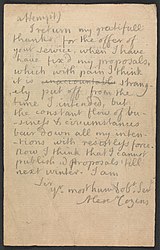 attempt)
I return my gratefull
thanks for the offer of
yout service, when I have
have fix'd my proposals,
which with pain I think
it is unaccountable strang-
ely put off from the
time I intended, but
the constant flow of bu-
siness & circumstances
bair down all my inten-
tions with resistless force.
Now I think that I cannot
publish my Proposals till
next winter. I am
Sir
Yr most hum & ob.t Ser.t
Alexr Cozens